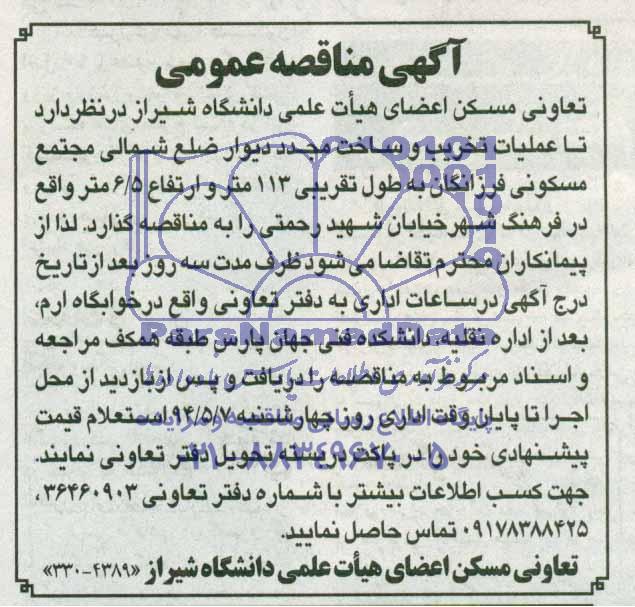 آگهی مناقصه عمومی
تعاونی مسکن اعضای هیأت علمی دانشگاه شیراز درنظردارد
تا عملیات تخریب و ساخت مجدد دیوار ضلع شمالی مجتمع
مسکونی فرزانگان به طول تقریبی ۱۱۳ متر و ارتفاع ۶/۵ متر واقع
در فرهنگ شهرخیابان شهید رحمتی را به مناقصه گذارد. لذا از
پیمانکاران محترم تقاضا می شود ظرف مدت سه روز بعد از تاریخ
درج آگهی درساعات اداری به دفتر تعاونی واقع درخوابگاه ارم،
بعد از اداره نقلیه، دانشکده فنی جهان پارس طبقه همکف مراجعه
و اسناد مربوط به مناقصه را دریافت و پس ازبازدید از محل
اجرا تا پایان وقت اداری روز چهارشنبه ۹۴/۵/۷ استعلام قیمت
پیشنهادی خود را در پاکت دربسته تحویل دفتر تعاونی نمایند.
جهت کسب اطلاعات بیشتر با شماره دفتر تعاونی ۳۶۴۶۰۹۰۳،
۰۹۱۷۸۳۸۸۴۲۵ تماس حاصل نمایید.
تعاونی مسکن اعضای هیأت علمی دانشگاه شیراز «۴۳۸۹-۳۳۰»
ParsNamadData
۰۲۱-۸۸۳۴۹۶۷۰-۵